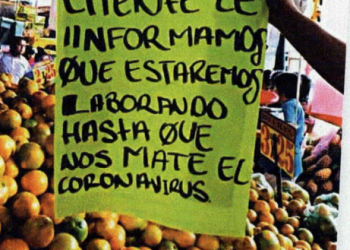 CLIENTE LE
IINFORMAMOS
QUE ESTAREMOS
LABORANDO
HASTA QUE
NOS MATE EL
CORONAVIRUS